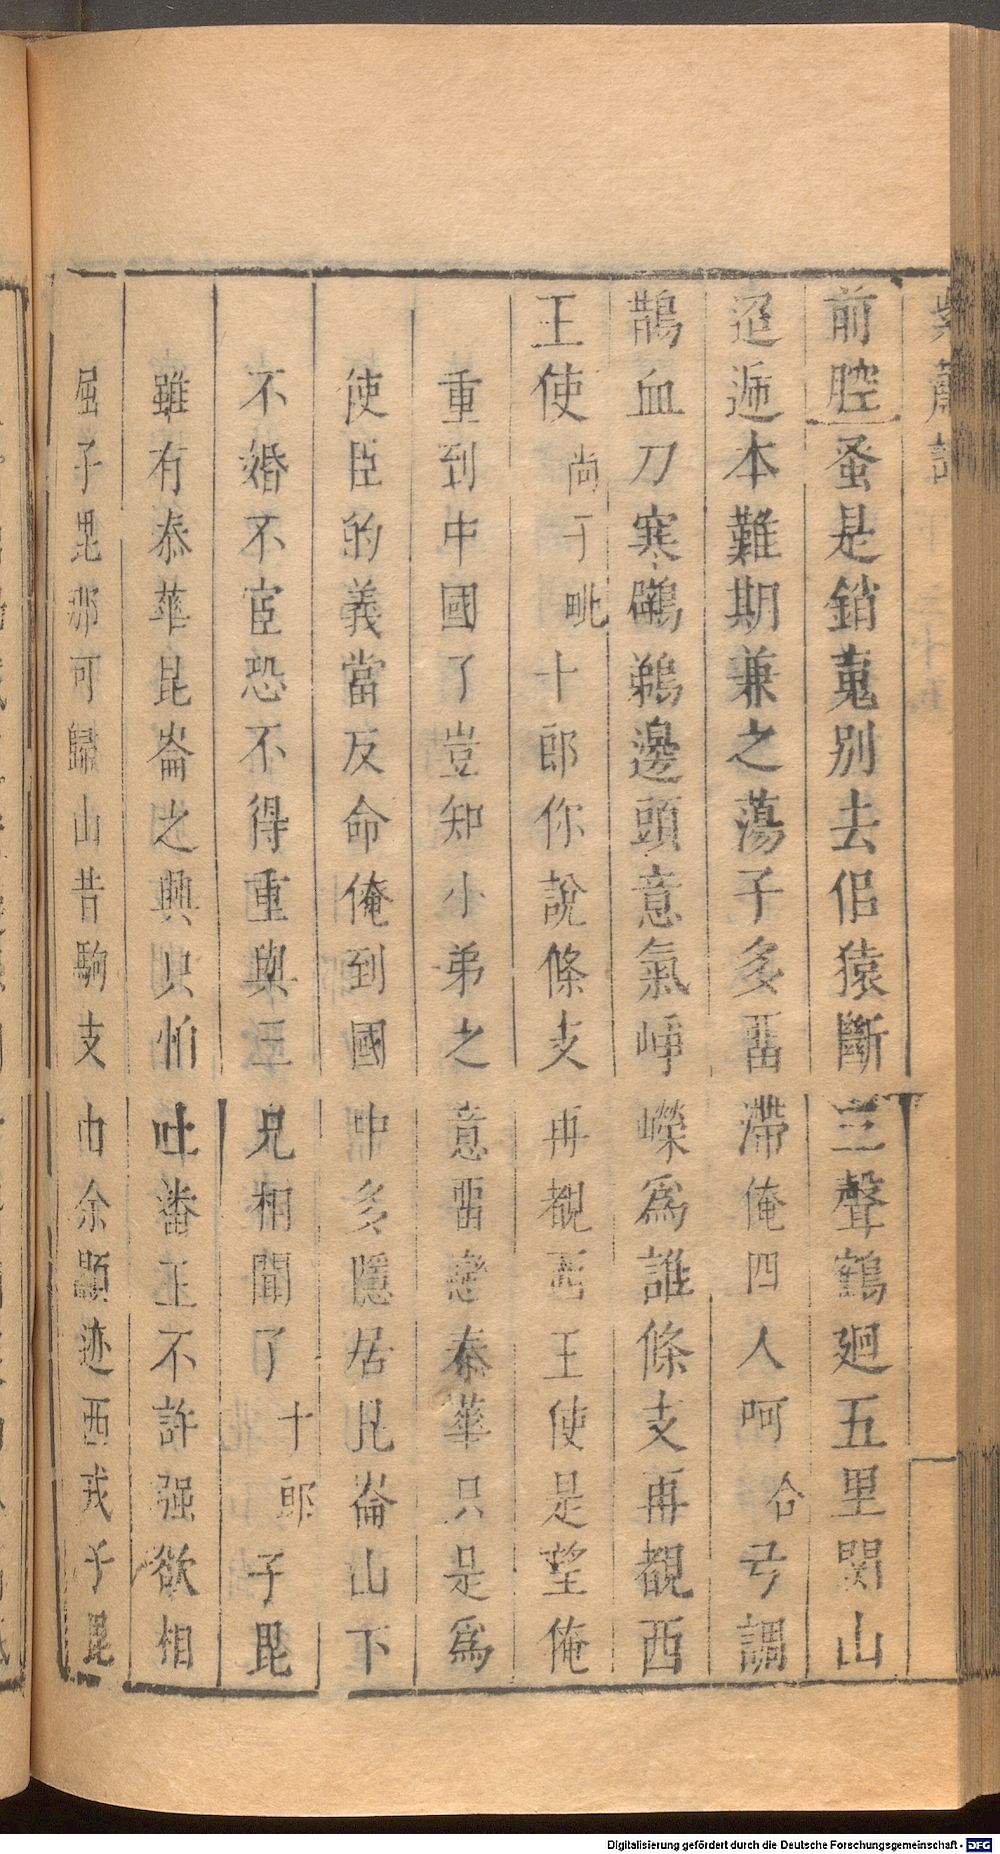 紫簫記
前腔蚤是銷䰟別去侶猿斷三聲鶴廻五里関山
迢遞本難期兼之蕩子多畱滯俺四人呵合弓調
鵲血刀寒鸊鵜邊頭意氣崢嶸爲誰條支再覩西
王使尚子毗十郎你說條支再覩西王使是望俺
重到中國了豈知小弟之意畱戀泰華只是爲
使臣的義當反命俺到國中多隱居昆崙山下
不婚不宦恐不得重與三兄相聞了十郎子毘
雖有泰華昆崙之興只怕吐番王不許强欲相
屈子毘那可歸山昔駒支由余顯迹西戎子毘
Digitalisierung gefördert durch die Deutsche Forschungsgemeinschaft - DFG